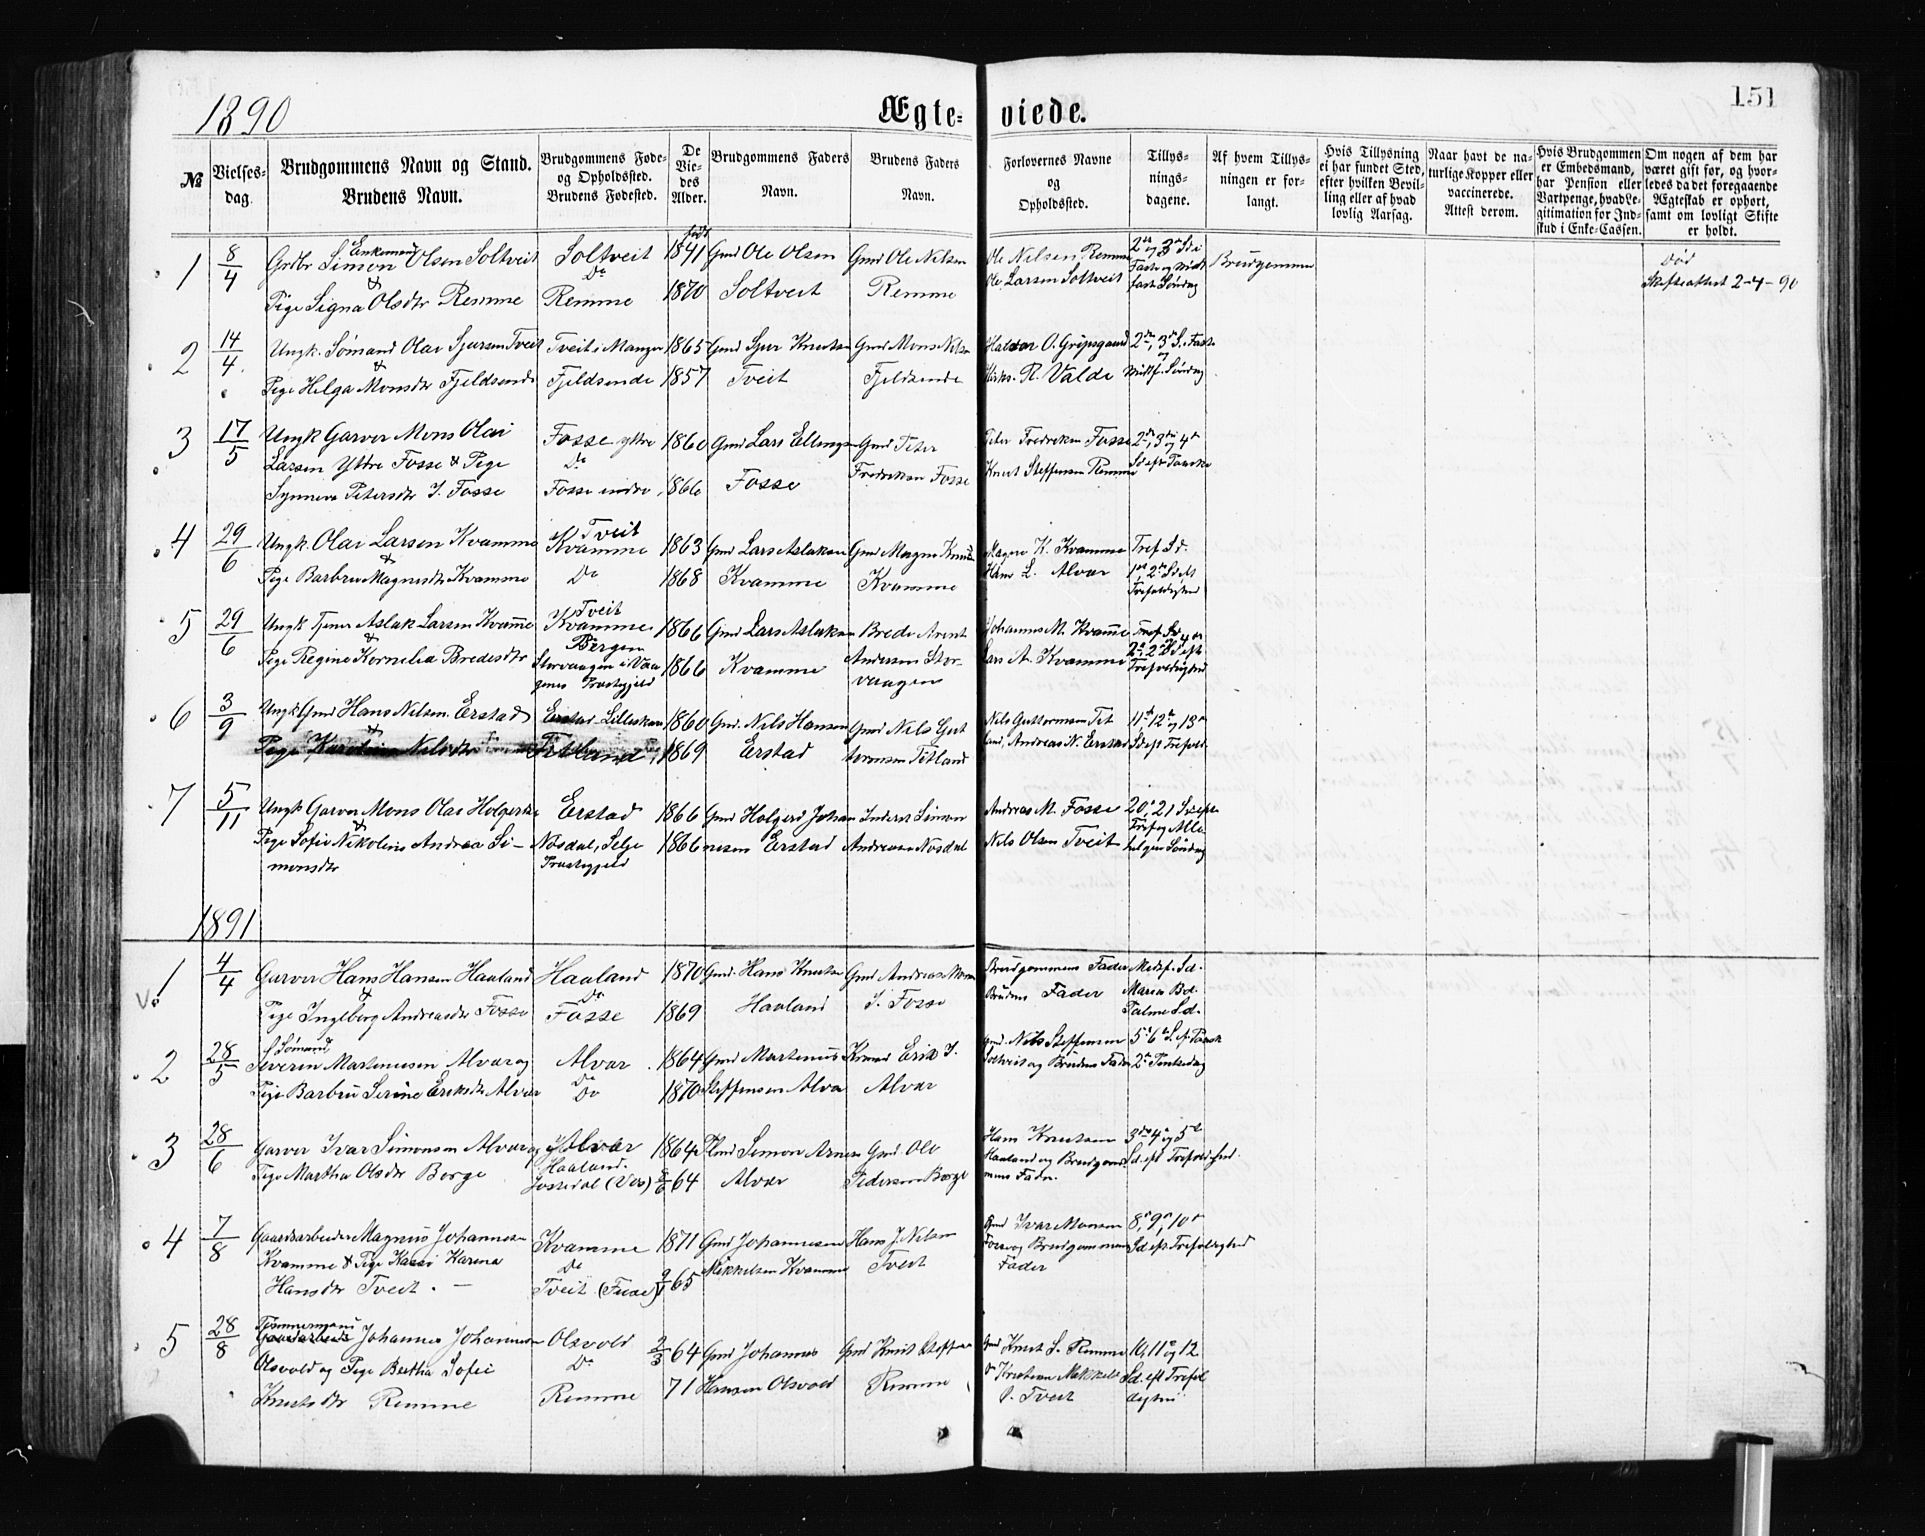 1890
Ægte-
viede.
151
№
Vielses-
dag.
Brudgommens Navn og Stand.
Brudens Navn.
Brudgommens Føde-
og Opholdssted.
Brudens Fødested.
De
Vie-
des
Alder.
Brudgommens Faders
Navn.
Brudens Faders
Navn.
Forlovernes Navne
og
Opholdssted.
Tillys-
nings-
dagene.
Af hvem Tillys-
ningen er for-
langt.
Hvis Tillysning
ei har fundet Sted,
efter hvilken Bevil-
ling eller af hvad
lovlig Aarsag.
Naar havt de na-
turlige Kopper eller
vaccinerede.
Attest derom.
Hvis Brudgommen
er Embedsmand,
har Pension eller
Vartpenge, hvad Le-
gitimation for Ind-
skud i Enke-Cassen.
Om nogen af dem har
været gift før, og hvor-
ledes da det foregaaende
Ægteskab er ophørt,
samt om lovligt Skifte
er holdt.
1 8/4
Grdbr Enkemand Simon Olsen Soltveit
&
Pige Signa Olsdtr Remme
Soltveit
Do
Remme
født
1841
1870
Gmd Ole Olsen
Soltveit
Gmd Ole Nilsen
Remme
Ole Nilsen Remme
Ole Larsen Soltveit
Brudgommen
død
Skifteattest 2-4-90
2 14/4
Ungk. Sømand Olai Sjursen Tveit
&
Pige Helga Monsdtr Fjeldsende
Tveit i Manger
Fjeldsende
1865
1857
Gmd Sjur Knutsen
Tveit
Gmd Mons Nilsen
Fjeldsende
R. Valde
3 17/5
Ungk Garver Mons Olai
Larsen Yttre Fosse & Pige
Synneve Petersdtr I. Fosse
Fosse yttre
Do
Fosse indre
1860
1866
Gmd Lars Ellingsen
Fosse
Gmd Peter
Fredriksen Fosse
Peter Fredriksen Fosse
Knut Steffensen Remme
4 29/6
Ungk. Olai Larsen Kvamme
&
Pige Barbru Magnesdtr Kvamme
Tveit
Kvamme
Do
1863
1868
Gmd Lars Aslaksen
Kvamme
Gmd Magne Knuts
Kvamme
Magne K. Kvamme
Hans L. Alvær
Tref. Sd.
Trefoldighed
5 29/6
Ungk Tjener Aslak Larsen Kvamme
&
Pige Regine Kornelia Bredesdtr
Tveit
Kvamme
Bergen
Storvaagen i Vaa
gens Præstegjeld
1866
1866
Gmd Lars Aslaksen
Kvamme
Brede Arent
Andersen Stor-
vaagen
Johannes M. Kvamme
Lars A. Kvamme
Trefoldighed
6 3/9
Ungk Gmd Hans Nilsen Erstad
&
Pige Karoline Nilsdtr
Erstad Lilleskare
Titland
1860
1869
Gmd. Nils Hansen
Erstad
Gmd Nils Gut
tormsen Titland
Nils Guttormsen Tit
land, Andreas N. Erstad
11te 12te og 13de
Sd eft Trefold.
7 5/11
Ungk Garver Mons Olai Holgersen
&
Pige Sofie Nikoline Andrea Si-
monsdtr
Erstad
Nosdal, Selje
Præstegjeld
1866
1866
Gmd Holgerd Johan
nesen Erstad
Inderst Simon
Andreasen Nosdal
Andreas M. Fosse
Nils Olsen Tveit
1891
1 4/4
Garver Hans Hansen Haaland
&
Pige Ingeborg Andreasdtr Fosse
Haaland
Do
Fosse
1870
1869
Gmd. Hans Knutsen
Haaland
Gmd Andreas Mons
I. Fosse
Brudgommens Fader
Brudens Fader
Midf. Sd.
Maria Bd.
Palme Sd.
2 28/5
Sømand
Severin Martinusen Alvær og
Pige Barbru Serine Eriksdtr Alvær
Alvær
Do
Do
1864
1870
Gmd Martinus
Steffensen Alvær
Erik I.
Alvær
Gmd. Nils Steffensen
Soltveit og Brudens Fader
2den Pintsedag
3 28/6
Garver Ivar Simonsen Alvær og
Pige Martha Olsdtr Borge
Alvær
Haaland.
Jostedal (Vos)
1864
64
Simon Arnesen
Alvær
Gmd. Ole
Pedersen Borge
Hans Knutsen
Haaland og Brudgom-
mens Fader.
3die 4de og 5te
Sd. eft Trefoldighed.
4 7/8
Gaardsarbeider Magnus Johannesen
Kvamme & Pige Kassi Karina
Hansdtr Tveit. —
Kvamme
Do
Tveit (Fuse)
1871
65
Gmd Johannesen
Mikkelsen Kvamme
Hans J. Nilsen
Tveit
Gmd Ivar Monsen
Fosse og Brudgommens
Fader
8de 9de, 10de
Sd eft Trefoldighed
5 28/8
Tømmermand
Johannes Johannesen
Olsvold og Pige Bertha Sofie
Knutsdtr Remme
Olsvold
Do
Remme
2/3 64
71
Gmd Johannes
Hansen Olsvold
Gmd Knut Steffensen
Remme
Gmd Knut S. Remme
Kristian Mikkels
Tveit
10, 11te og 12
Sd. eft Trefol